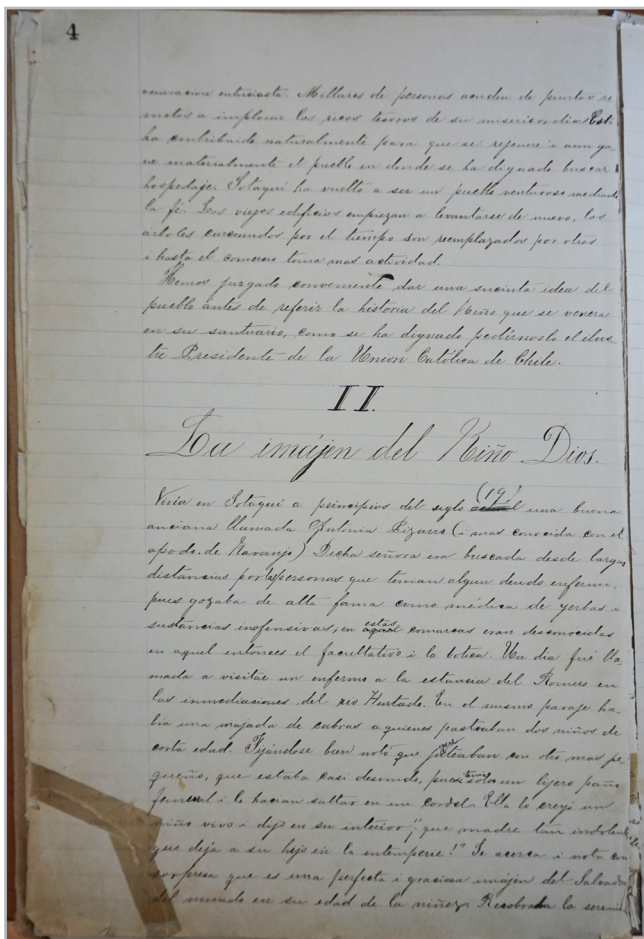 4
veneracion entusiasta. Millares de personas acuden de puntos re
motos a implorar los ricos tesoros de su misericordia. Esto
ha contribuido naturalmente para que se rejenere i aun ga
ne materialmente el pueblo en donde se ha dignado buscar
hospedaje. Sotaquí ha vuelto a ser un pueblo venturoso mediante
la fé. Los viejos edificios empiezan a levantarse de nuevo, los
árboles carcomidos por el tiempo son remplazados por otros
i hasta el comercio toma mas actividad.
Hemos juzgado conveniente dar una sucinta idea del
pueblo ántes de referir la historia del Niño que se venera
en su santuario, como se ha dignado pedírnoslo el ilus
tre Presidente de la Union Católica de Chile.
II.
La imájen del Niño Dios.
(19)
Vivia en Sotaquí a principios del siglo actual una buena
anciana llamada Antonia Pizarro (i mas conocida con el
apodo de Naranjo) Dicha señora era buscada desde largas
distancias por las personas que tenian algun deudo enfermo,
pues gozaba de alta fama como médica de yerbas i
sustancias inofensivas; en estas comarcas eran desconocidas
en aquel entonces el facultativo i la botica. Un dia fué lla
mada a visitar un enfermo a la estancia del Romero en
las inmediaciones del rio Hurtado. En el mismo paraje ha
bia una majada de cabras a quienes pasteaban dos niños de
corta edad. Fijándose bien notó que jugueteaban con otro mas pe
queño, que estaba casi desnudo, pues tenia solo un lijero paño
femoral i lo hacian saltar en un cordel. Ella lo creyó un
niño vivo i dijo en su interior, "¡que madre tan indolente
que deja a su hijo en la intemperie!" Se acerca i nota con
sorpresa que es una perfecta i graciosa imájen del Salvador
del mundo en su edad de la niñez. Recobrada la sereni